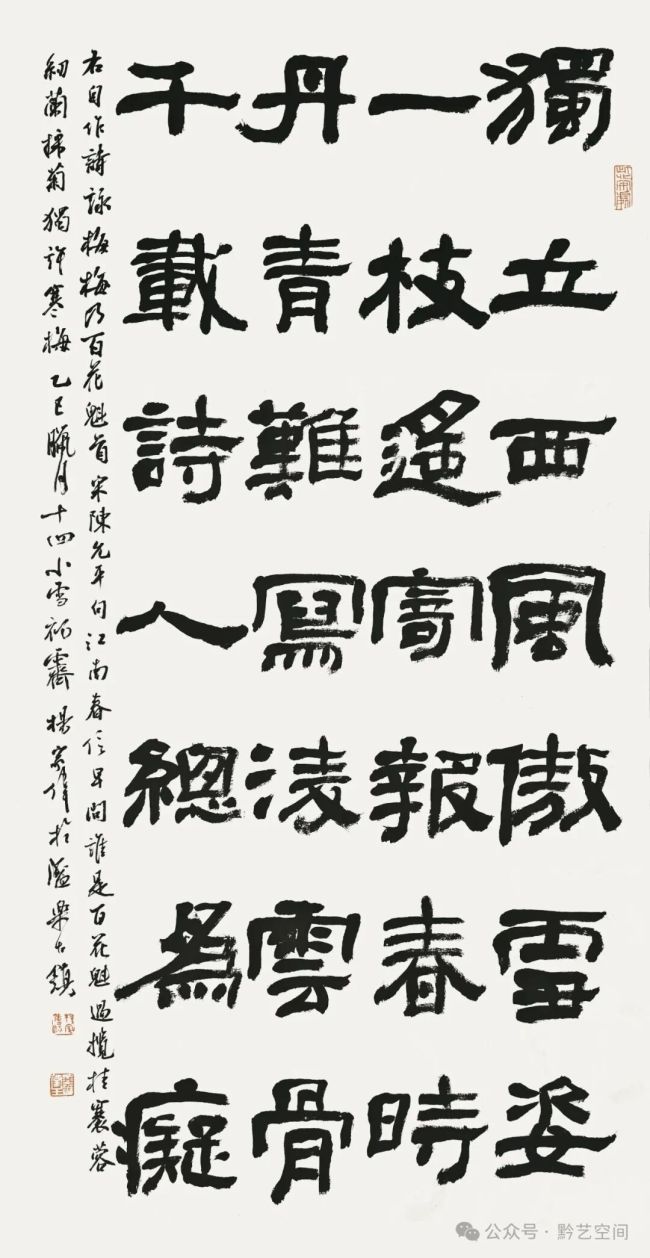 獨立西風傲雪姿
一枝遥寄報春時
丹青難寫淩雲骨
千載詩人總為癡
右自作詩詠梅梅乃百花魁首宋陳允平句江南春信早問誰是百花魁遍攬桂褰蓉
紉蘭掃菊獨許寒梅乙巳臘月十四小雪初霽楊於溢樂古鎮
公众号·黔艺空间